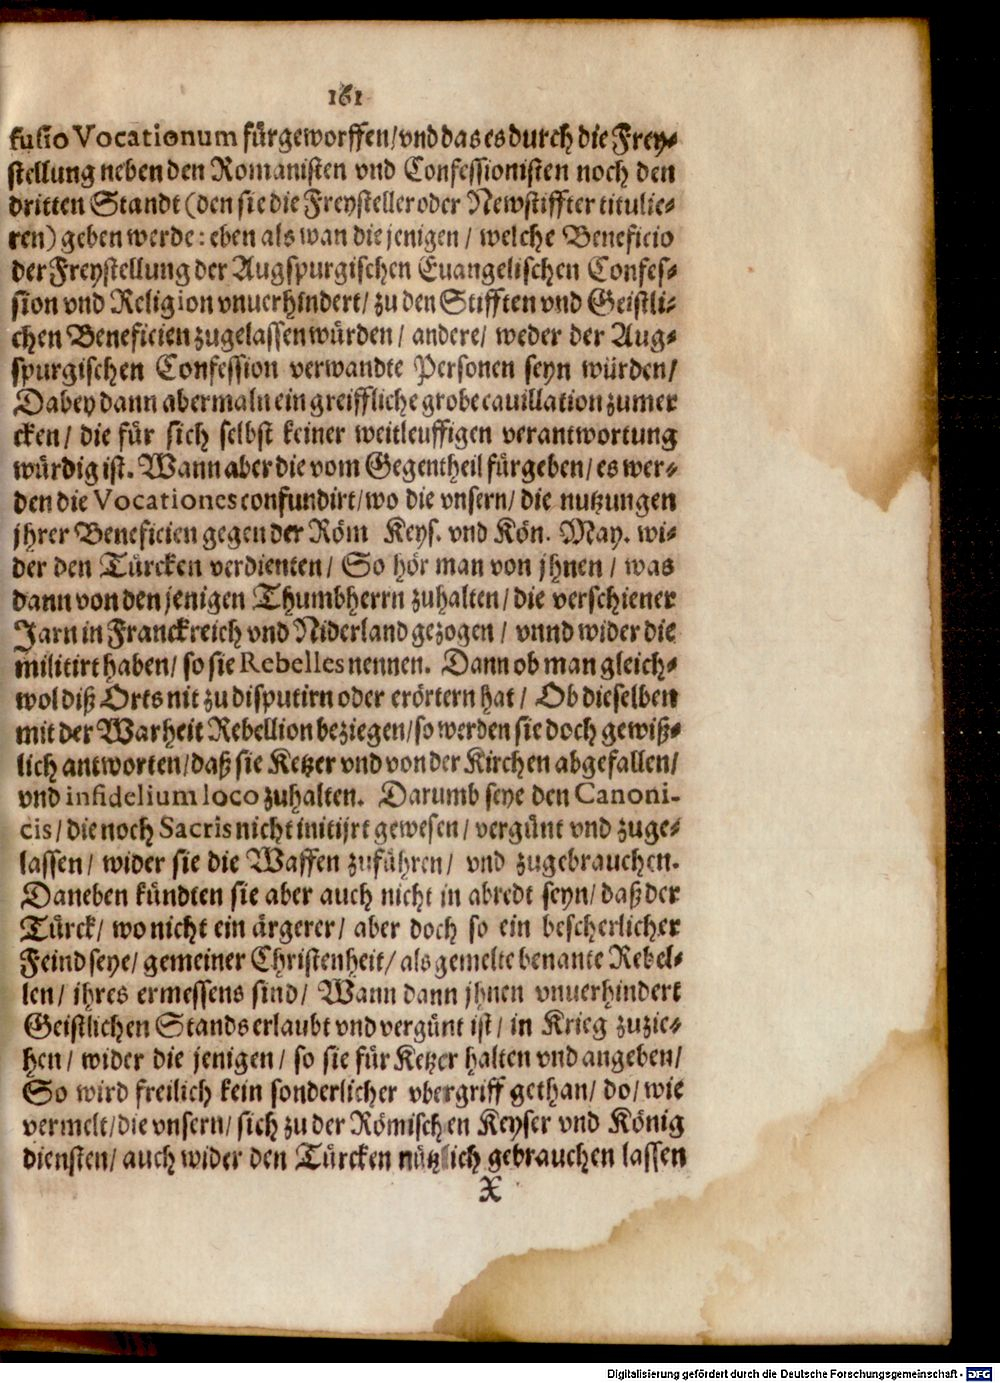 161
fusio Vocationum fürgeworffen/vnd das es durch die Frey-
stellung neben den Romanisten vnd Confessionisten noch den
dritten Standt (den sie die Freysteller oder Newstiffter titulie-
ren) geben werde: eben als wan die jenigen / welche Beneficio
der Freystellung der Augspurgischen Euangelischen Confes-
sion vnd Religion vnuerhindert/ zu den Stifften vnd Geistli-
chen Beneficien zugelassen würden / andere/ weder der Aug-
spurgischen Confession verwandte Personen seyn würden/
Dabey dann abermaln ein greiffliche grobe cauillation zumer
cken/ die für sich selbst keiner weitleuffigen verantwortung
würdig ist. Wann aber die vom Gegentheil fürgeben/ es wer-
den die Vocationes confundirt/wo die vnsern/ die nutzungen
jhrer Beneficien gegen der Röm Keys. vnd Kön. May. wi-
der den Türcken verdienten/ So hör man von jhnen / was
dann von den jenigen Thumbherrn zuhalten/ die verschiener
Jarn in Franckreich vnd Niderland gezogen / vnnd wider die
militirt haben/ so sie Rebelles nennen. Dann ob man gleich-
wol diß Orts nit zu disputirn oder erörtern hat / Ob dieselben
mit der Warheit Rebellion beziegen/so werden sie doch gewiß-
lich antworten/daß sie Ketzer vnd von der Kirchen abgefallen/
vnd infidelium loco zuhalten. Darumb seye den Canoni-
cis/ die noch Sacris nicht initijrt gewesen/ vergünt vnd zuge-
lassen/ wider sie die Waffen zuführen/ vnd zugebrauchen.
Daneben kündten sie aber auch nicht in abredt seyn/ daß der
Türck/ wo nicht ein ärgerer/ aber doch so ein bescherlicher
Feind seye/ gemeiner Christenheit/ als gemelte benante Rebel-
len/ ihres ermessens sind/ Wann dann jhnen vnuerhindert
Geistlichen Stands erlaubt vnd vergünt ist/ in Krieg zuzie-
hen/ wider die jenigen/ so sie für Ketzer halten vnd angeben/
So wird freilich kein sonderlicher vbergriff gethan/ do/ wie
vermelt/die vnsern/ sich zu der Römischen Keyser vnd König
diensten/ auch wider den Türcken nützlich gebrauchen lassen
X
Digitalisierung gefördert durch die Deutsche Forschungsgemeinschaft - DFG